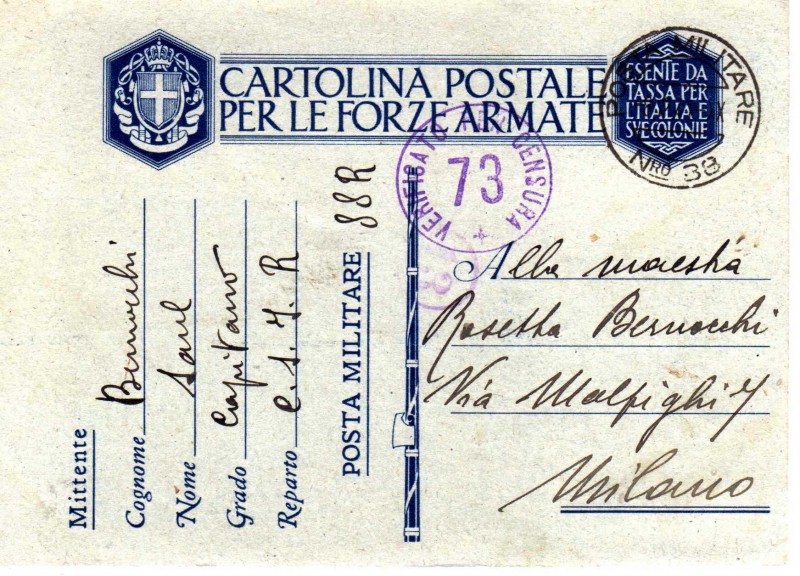 CARTOLINA POSTALE
PER LE FORZE ARMATE
ESENTE DA
TASSA PER
L'ITALIA E
SVE COLONIE
POSTA MILITARE
NRO 38
VERIFICATO PER CENSURA
73
Mittente
Cognome Bernocchi
Nome
Grado Capitano
Reparto C. S. I. R
POSTA MILITARE 88R
Alla maestra
Rosetta Bernocchi
Via Malpighi 7
Milano